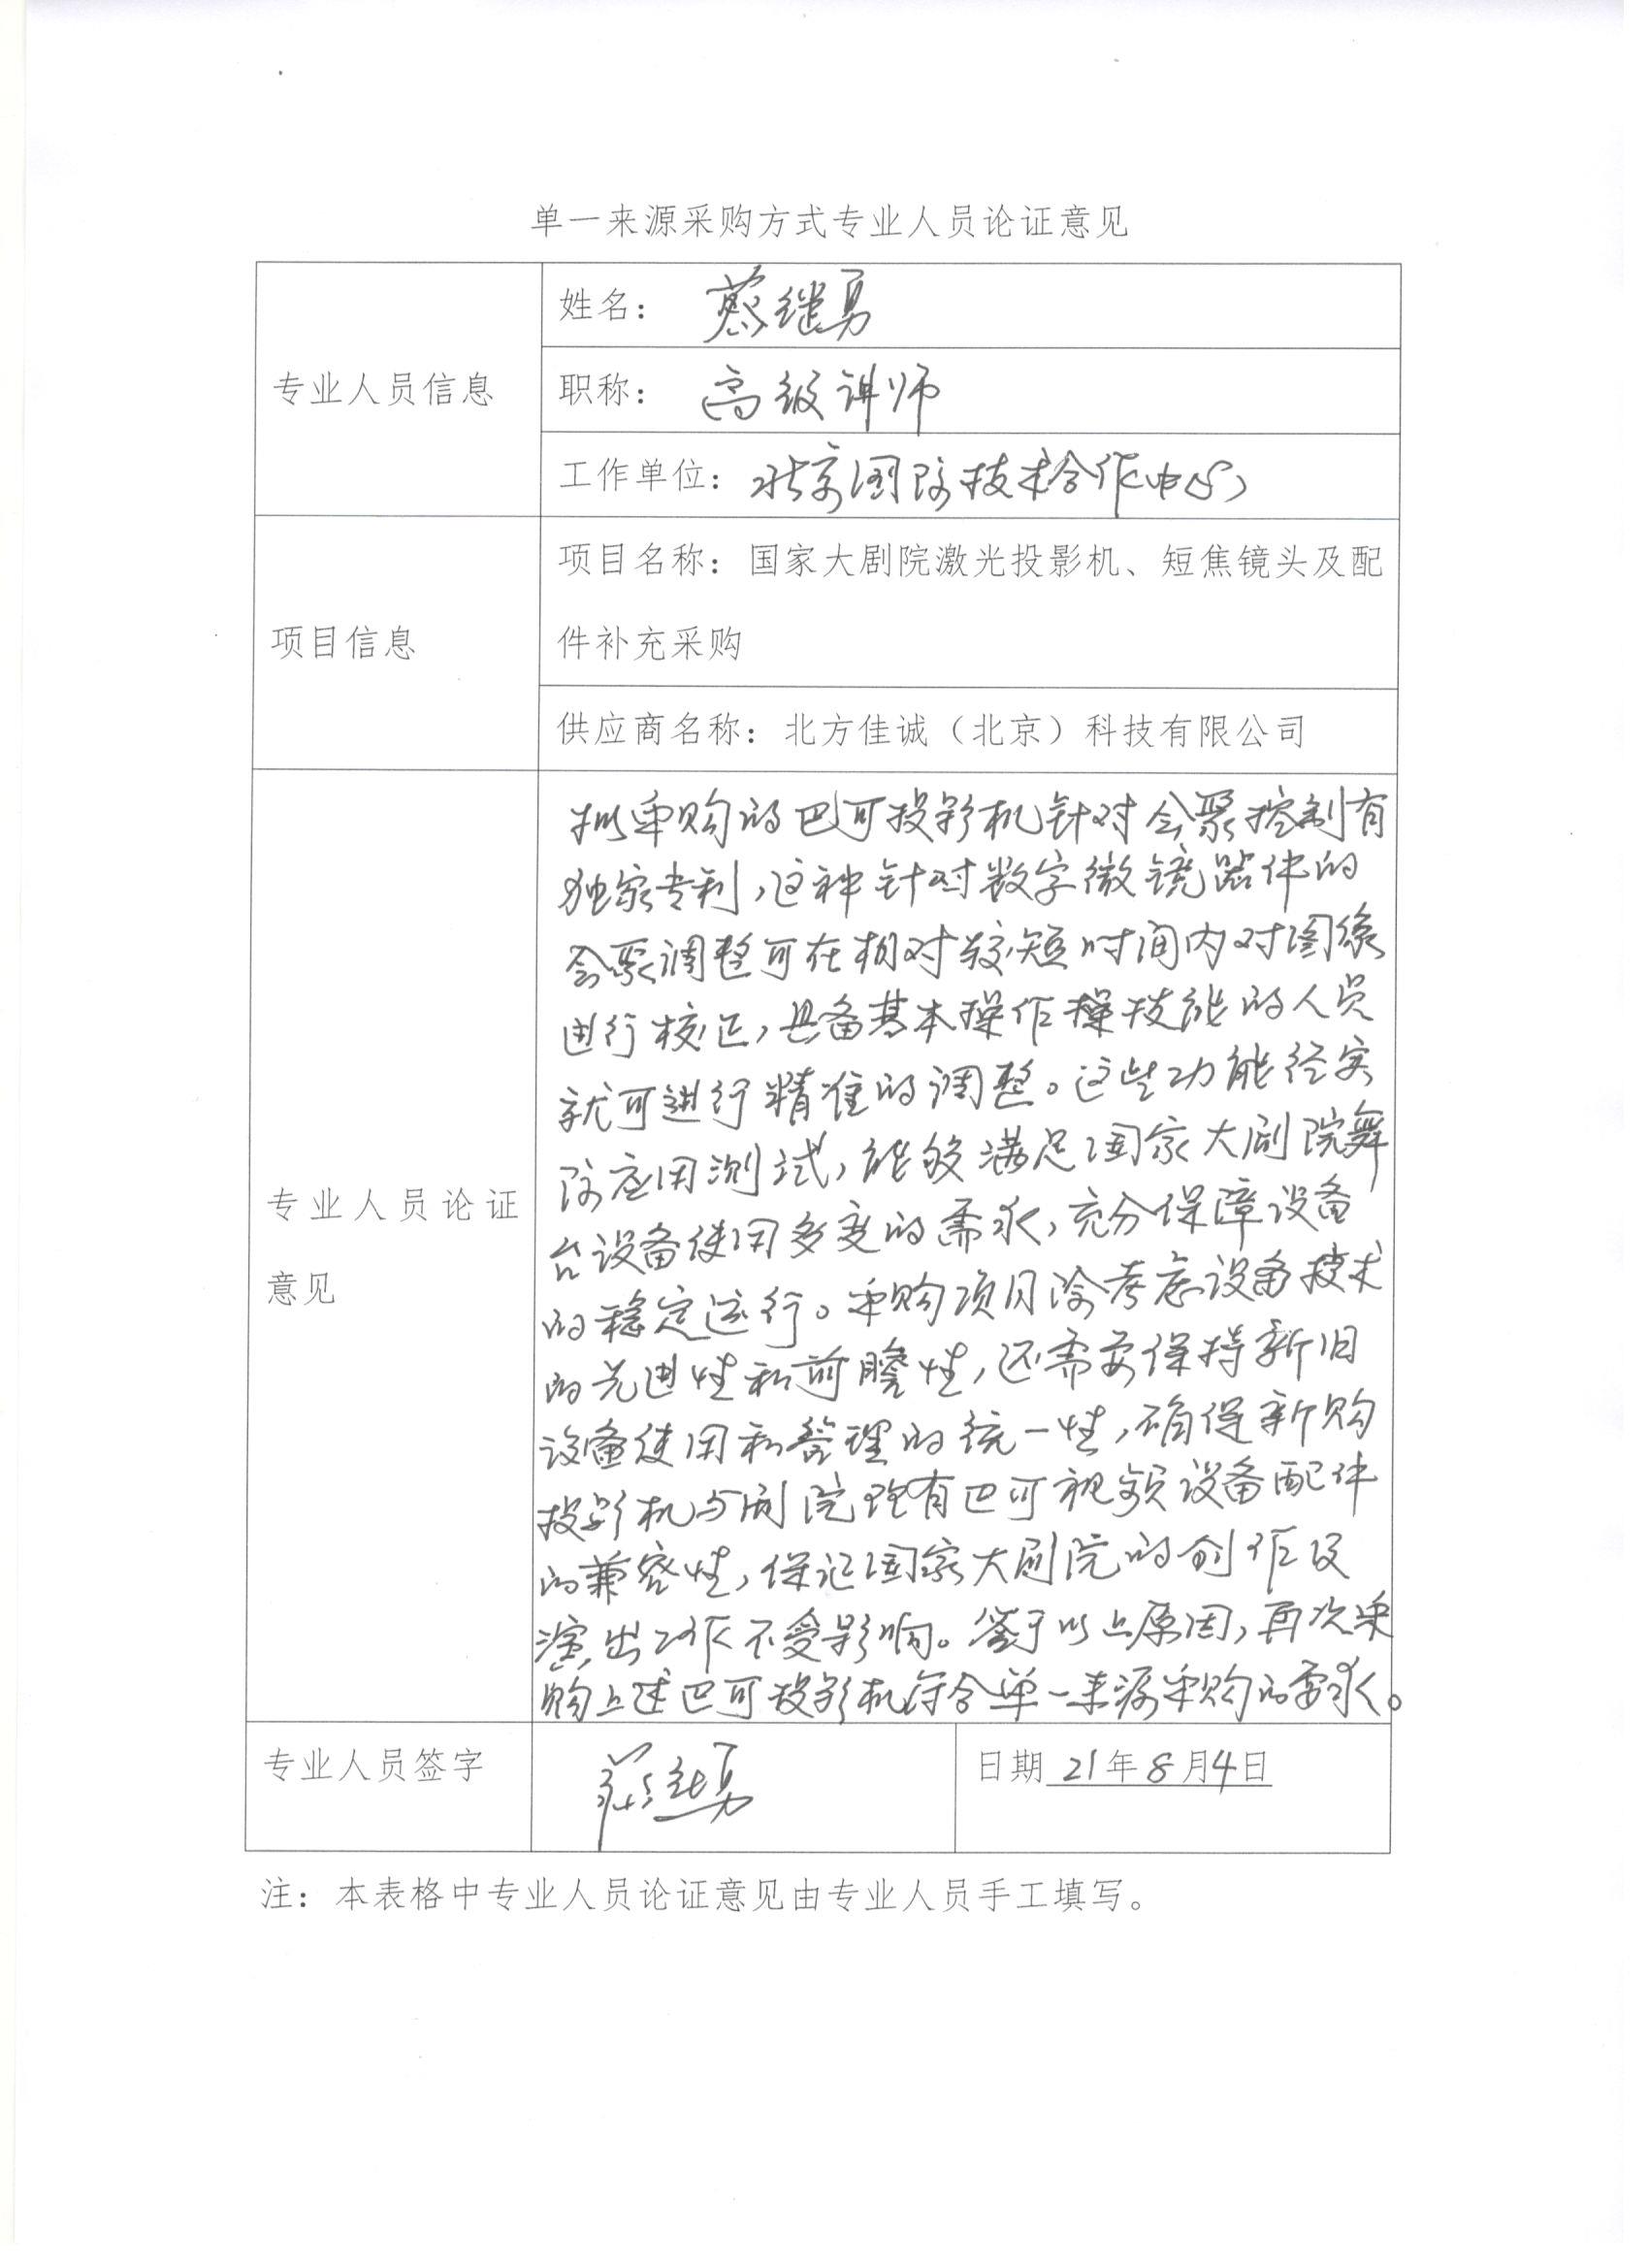 单一来源采购方式专业人员论证意见
专业人员信息
姓名：蔡继勇
职称：高级讲师
工作单位：北京国际技术合作中心
项目信息
项目名称：国家大剧院激光投影机、短焦镜头及配
件补充采购
供应商名称：北方佳诚（北京）科技有限公司
专业人员论证
意见
拟采购的巴可投影机针对会聚控制有
独家专利，这种针对数字微镜器件的
会聚调整可在相对较短时间内对图像
进行校正，具备基本操作操技能的人员
就可进行精准的调整。这些功能经实
际应用测试，能够满足国家大剧院舞
台设备使用多变的需求，充分保障设备
的稳定运行。采购项目除考虑设备技术
的先进性和前瞻性，还需要保持新旧
设备使用和管理的统一性，确保新购
投影机与剧院现有巴可视频设备配件
的兼容性，保证国家大剧院的创作及
演出工作不受影响。鉴于以上原因，再次采
购上述巴可投影机符合单一来源采购的要求。
专业人员签字
蔡继勇
日期 21年8月4日
注：本表格中专业人员论证意见由专业人员手工填写。